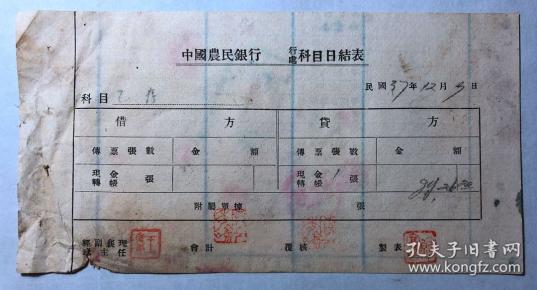 中國農民銀行 行處 科目日結表
民國37年12月9日
科目
借方 貸方
傳票張數 金額 傳票張數 金額
現金 轉帳 張 現金 轉帳 1 張
附屬單據 張
經副襄理 或主任 會計 覆核 製表
孔夫子旧书网
kongfz.com